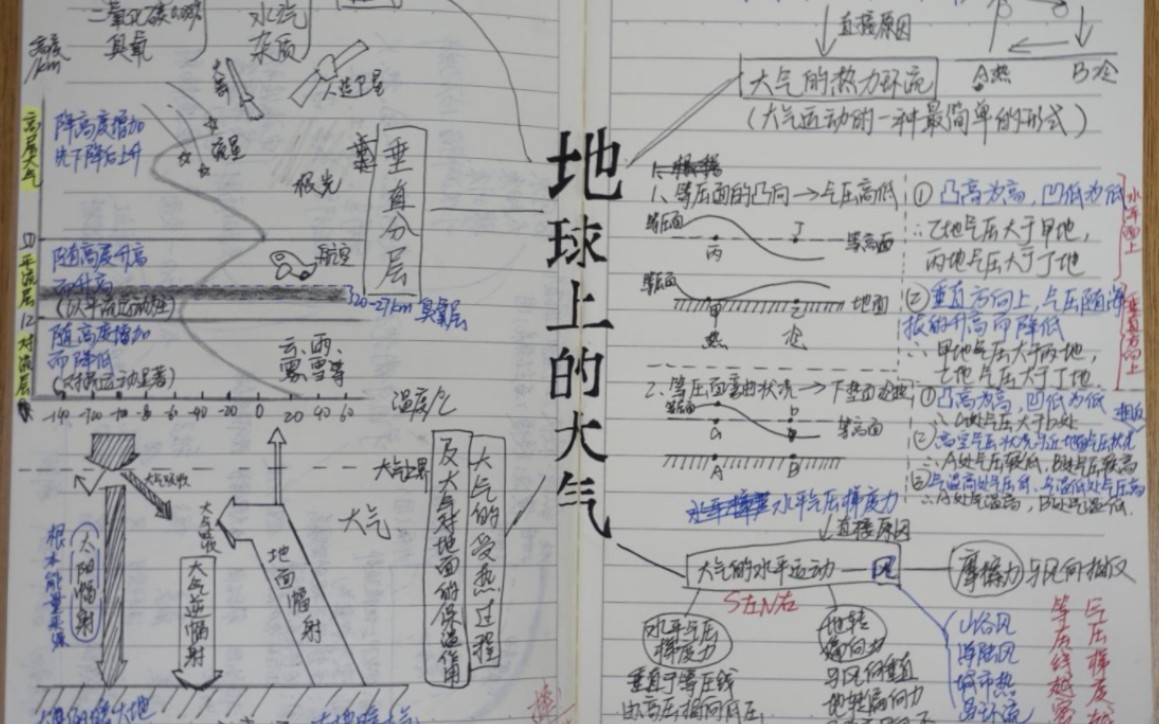 二氧化碳
臭氧
水汽
杂质
高度
/km
人造卫星
高层大气
降高度增加
先下降后上升
流星
极光
垂直分层
50
平流层
随高度升高
而升高
(以平流运动为主)
航空
20-27km 臭氧层
12
对流层
随高度增加
而降低
(对流运动显著)
云、雨、
雾、雪等
-140 -120 -100 -80 -60 -40 -20 0 20 40 60
温度/℃
大气上界
大气吸收
大气吸收
大气
根本能量来源
太阳辐射
大气逆辐射
地面辐射
大气的受热过程
及大气对地面的保温作用
地球上的大气
直接原因
A热
B冷
大气的热力环流
(大气运动的一种最简单的形式)
1、等压面的凸向→气压高低
等压面
丙
丁
等高面
等压面
甲
乙
地面
热
冷
①凸高为高,凹低为低
∴乙地气压大于甲地,
丙地气压大于丁地
水平面上
②垂直方向上,气压随海
拔的升高而降低
∴甲地气压大于丙地,
乙地气压大于丁地
垂直方向上
2、等压面弯曲状况→下垫面
等压面
a
b
等高面
A
B
①凸高为高,凹低为低
∴a处气压大于b处
②高空气压状况与近地面气压状况
相反
∴A处气压较低,B处气压较高
③气温高处气压低、气温低处气压高
∴A处气温高,B处气温低.
水平气压梯度力
直接原因
大气的水平运动—风
摩擦力与风向相反
S左N右
水平气压
梯度力
垂直于等压线
由高压指向低压
地转
偏向力
与风向垂直
地转偏向力
山谷风
海陆风
城市热
岛环流
等压线越密
气压梯度